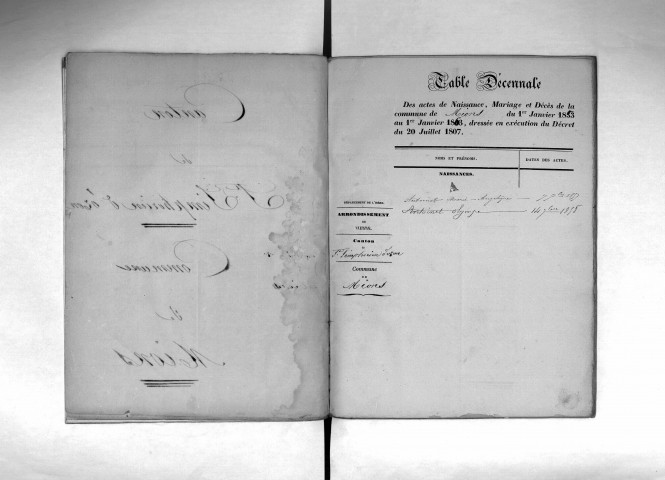 Canton
de
St Simphorien d'ozon
Commune
de
Mions
Table Décennale
Des actes de Naissance, Mariage et Décès de la
commune de Mions du 1er Janvier 1853
au 1er Janvier 1863, dressée en exécution du Décret
du 20 Juillet 1807.
NOMS ET PRÉNOMS. DATES DES ACTES.
NAISSANCES.
A
DÉPARTEMENT DE L'ISÈRE.
ARRONDISSEMENT
DE
VIENNE.
Canton
St Simphorien d'ozon
Commune
de
Mions
14 9bre 1858